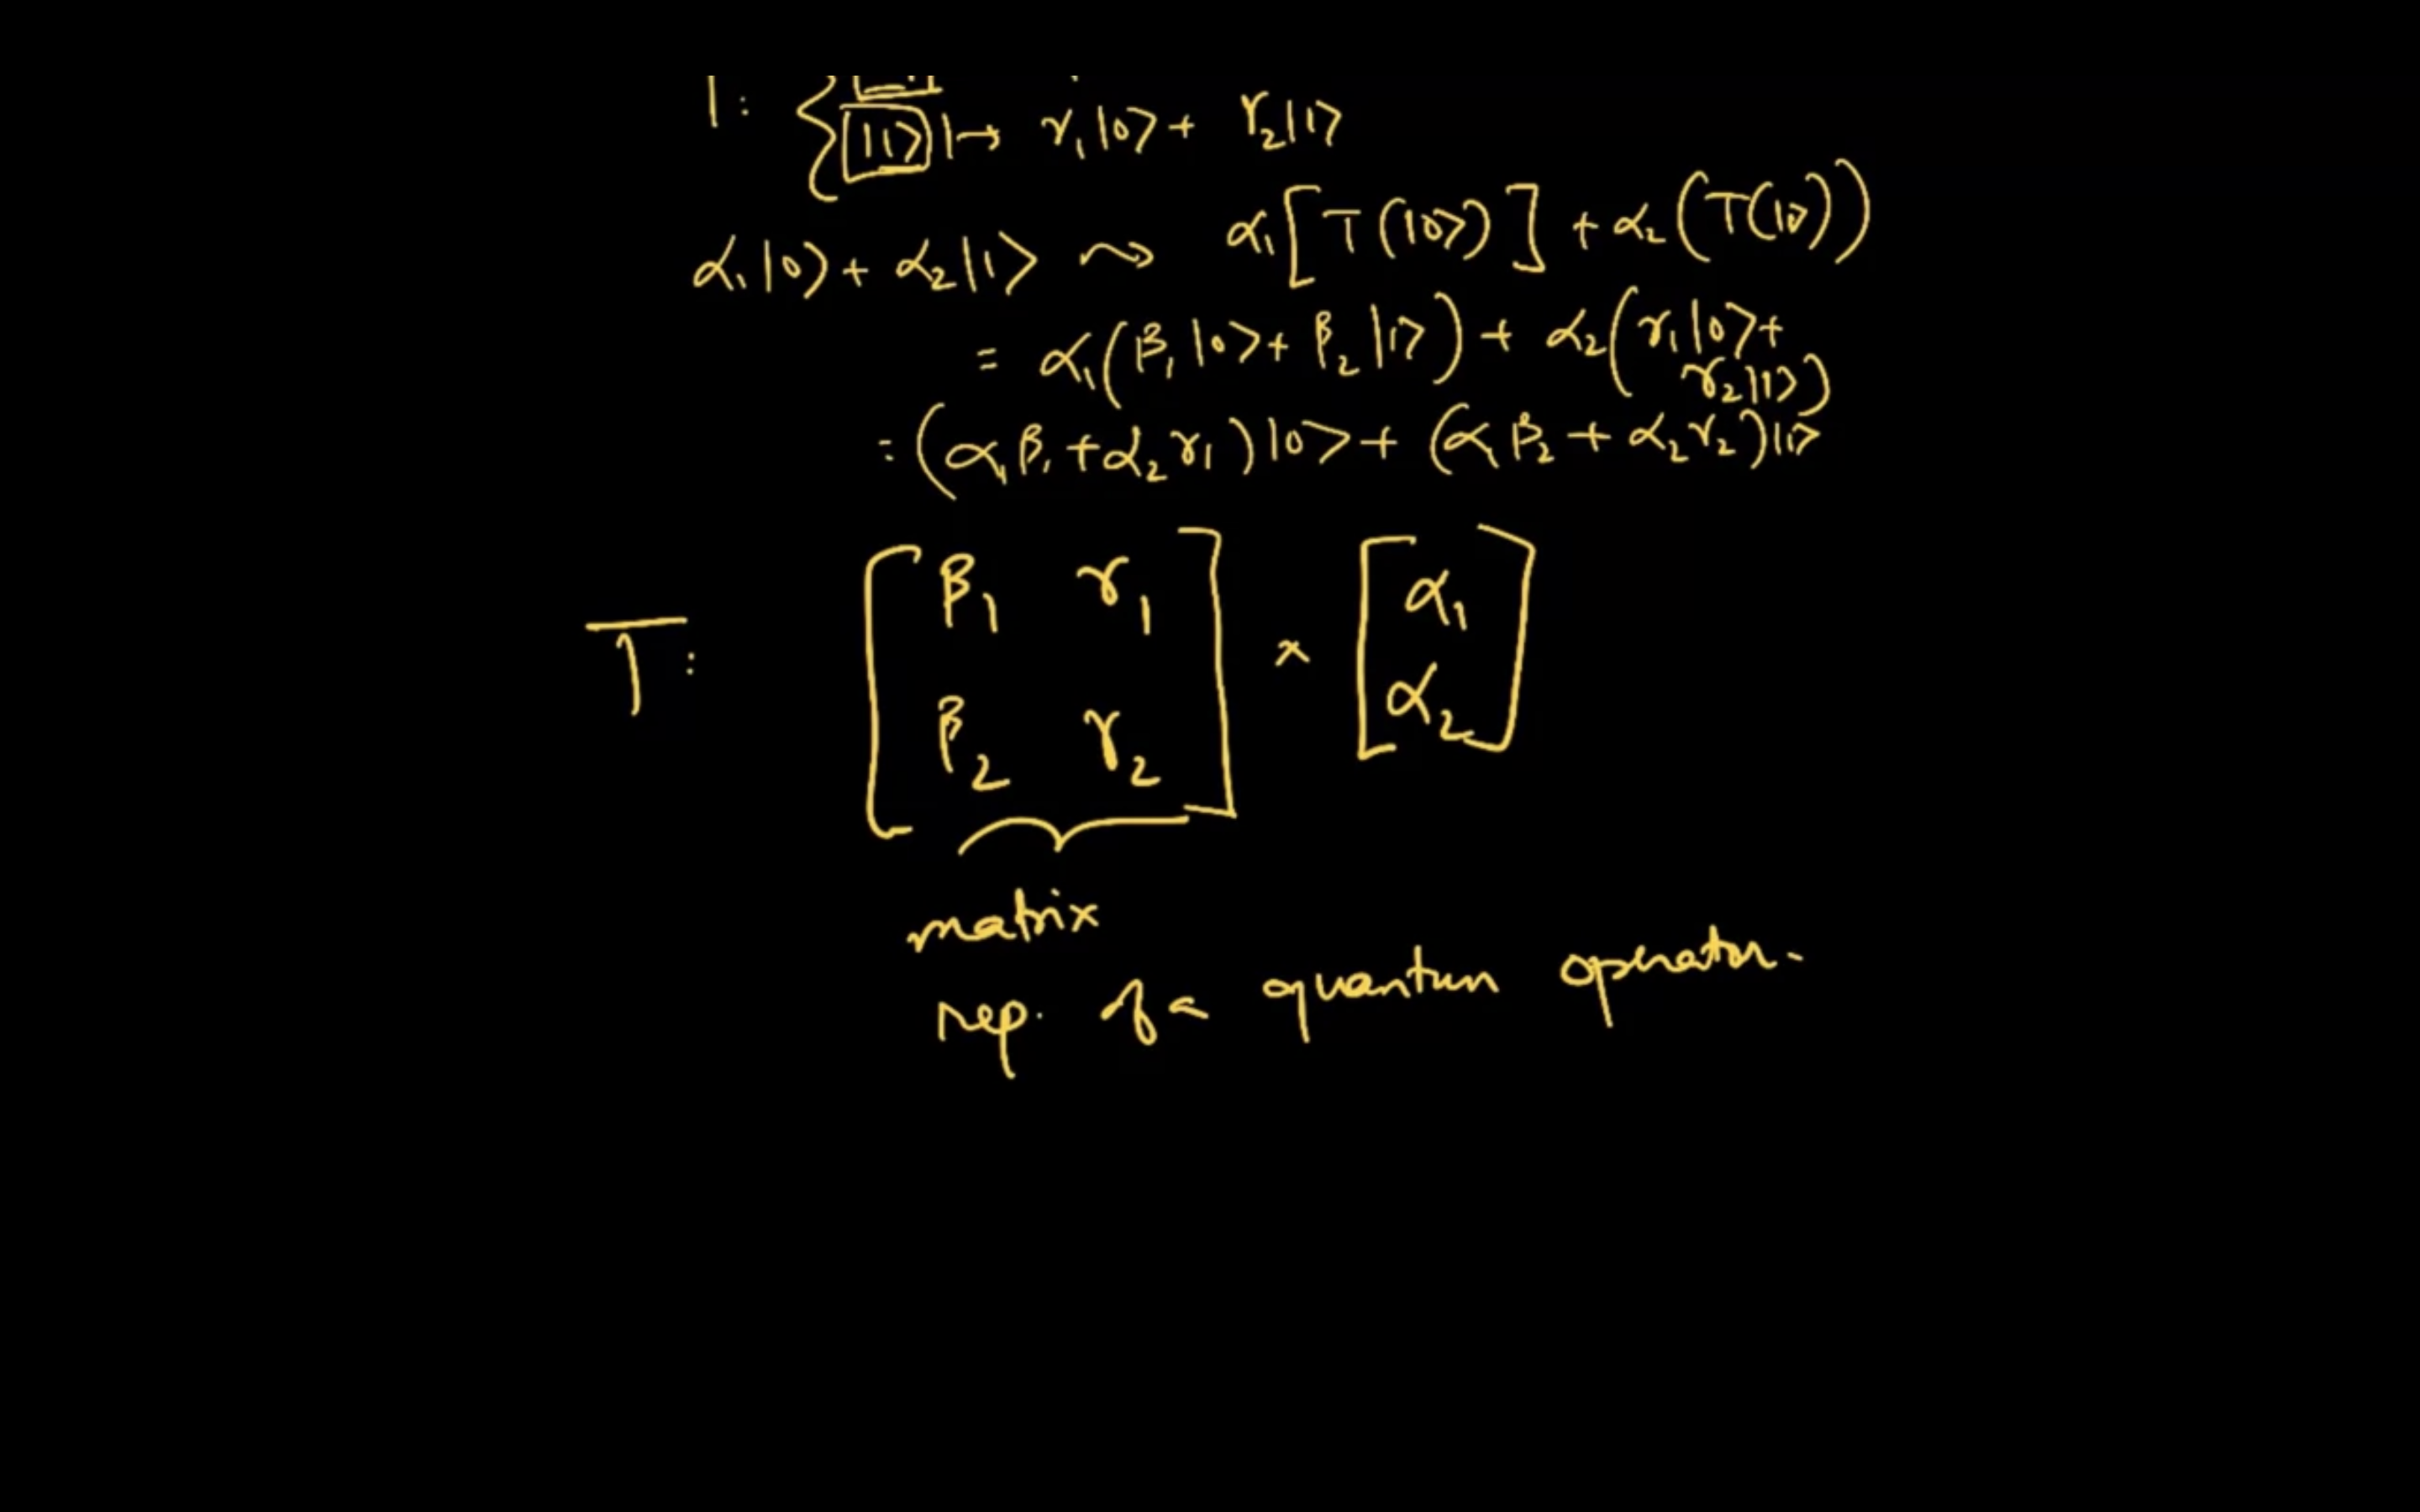 T: { |1⟩ ↦ γ₁|0⟩ + γ₂|1⟩
α₁|0⟩ + α₂|1⟩ ⇝ α₁[T(|0⟩)] + α₂(T(|1⟩))
= α₁(β₁|0⟩ + β₂|1⟩) + α₂(γ₁|0⟩ +
γ₂|1⟩)
= (α₁β₁ + α₂γ₁)|0⟩ + (α₁β₂ + α₂γ₂)|1⟩
T: [ β₁ γ₁ ] × [ α₁ ]
[ β₂ γ₂ ] [ α₂ ]
matrix
rep. of a quantum operator.